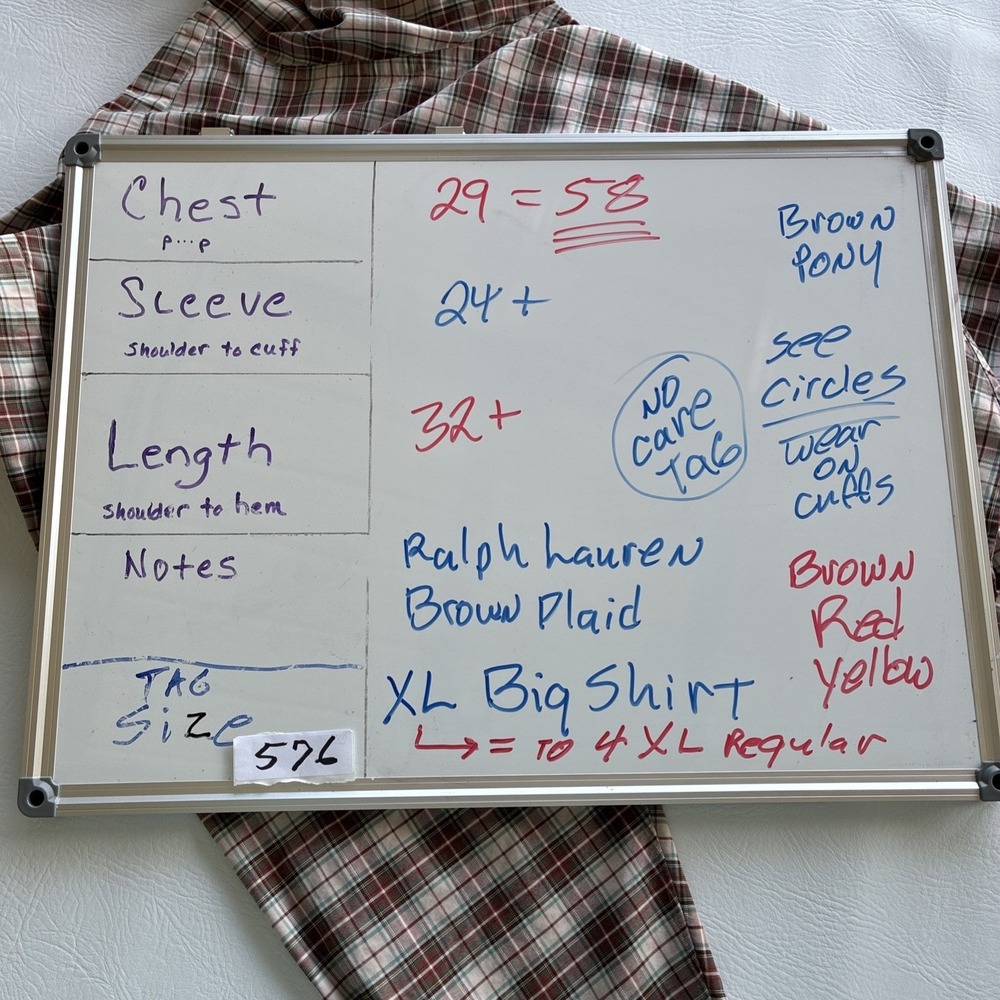 Chest
p...p
29 = 58
Brown
PONY
Sleeve
shoulder to cuff
24 +
see
circles
wear
on
cuffs
NO
care
TAG
Length
shoulder to hem
32 +
Notes
Ralph Lauren
Brown Plaid
Brown
Red
Yellow
TAG
Size
576
XL Big Shirt
= TO 4 XL Regular